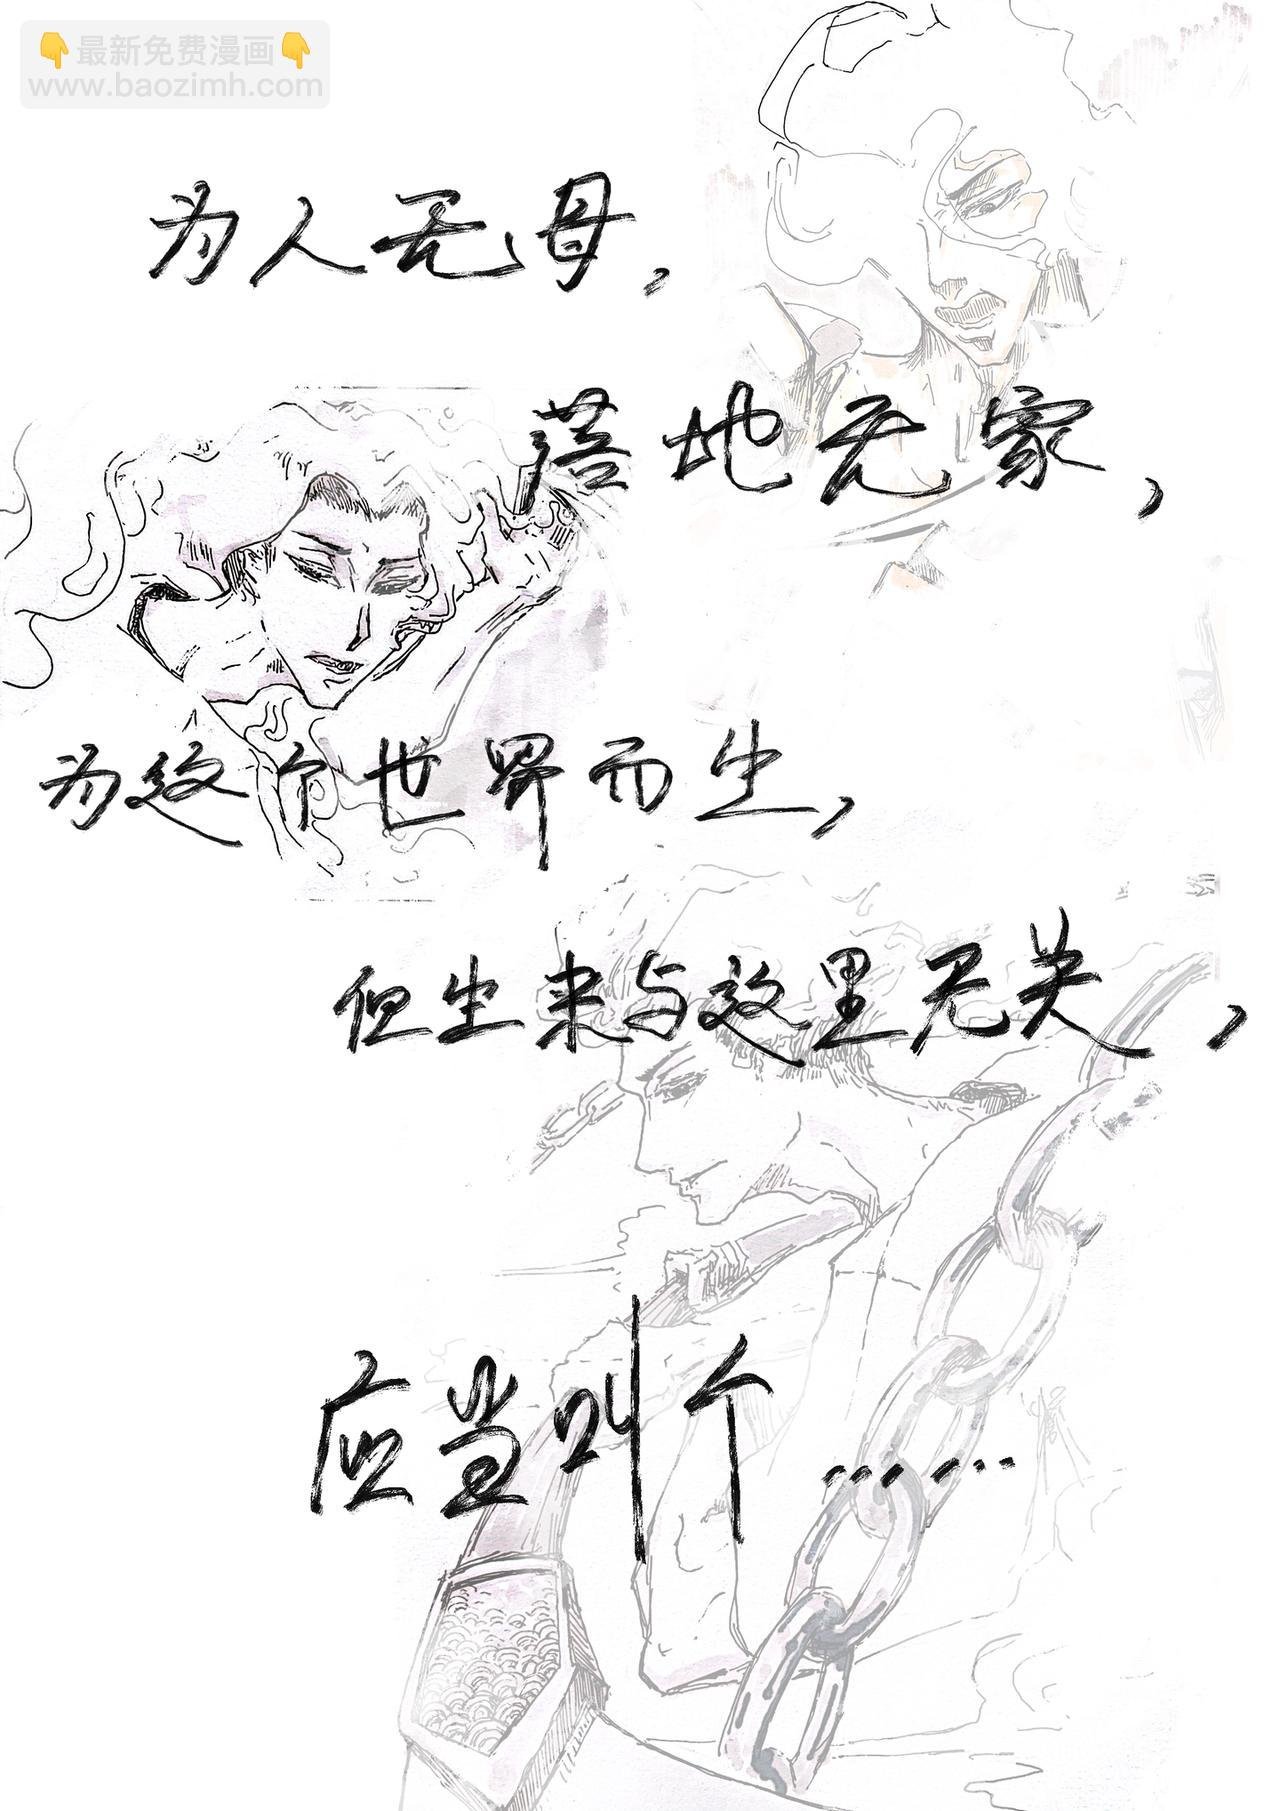 👇最新免费漫画👇
www.baozimh.com
为人无母，
落地无家，
为这个世界而生，
但生来与这里无关，
应当叫个……